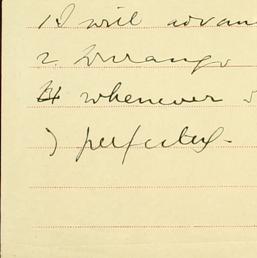 I will advan
2 Durango
whenever
) perfectly.